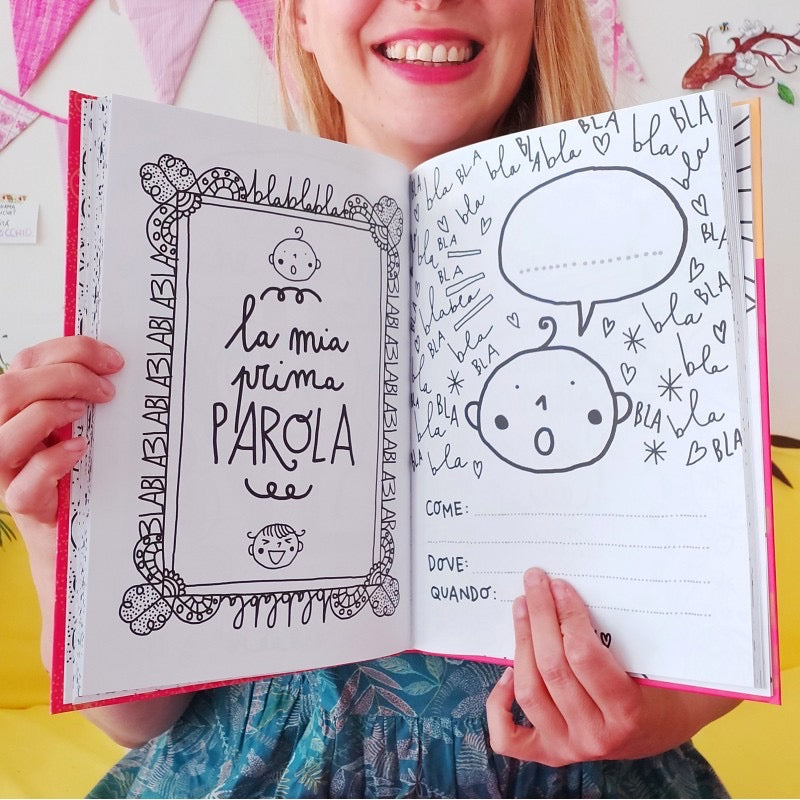 blablabla
BLABLABLABLABLABLA
la mia
prima
PAROLA
BLABLABLABLABLABLA
blablabla
bla BLA bla BLA bla BLA bla BLA
bla
BLA
bla
bla
BLA
bla
BLA
BLA
bla
blabla
BLA
bla
BLA
bla
BLA
bla
bla
BLA
BLA
bla
bla
BLA
bla
COME:
DOVE:
QUANDO: